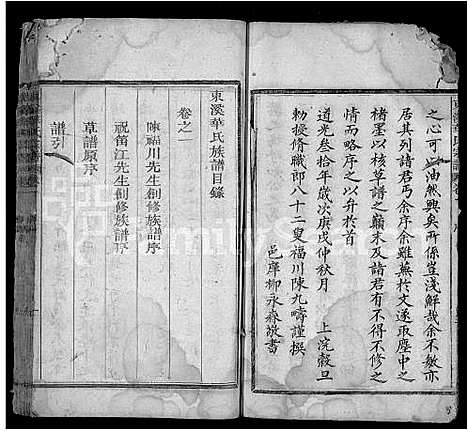 之心可以油然興矣所係豈淺鮮哉余不敏亦
居其列諸君丐余序余雖蕪於文遂取塵中之
楮墨以核草譜之顛末及諸君有不得不修之
情而略序之以弁於首
道光叁拾年歲次庚戌仲秋月 上浣穀旦
勅授修職郎八十二叟福川陳九疇謹撰
邑庠柳永森敬書
東溪華氏族譜目錄
卷之
陳福川先生創修族譜序
祝笛江先生創修族譜序
草譜原序
譜引